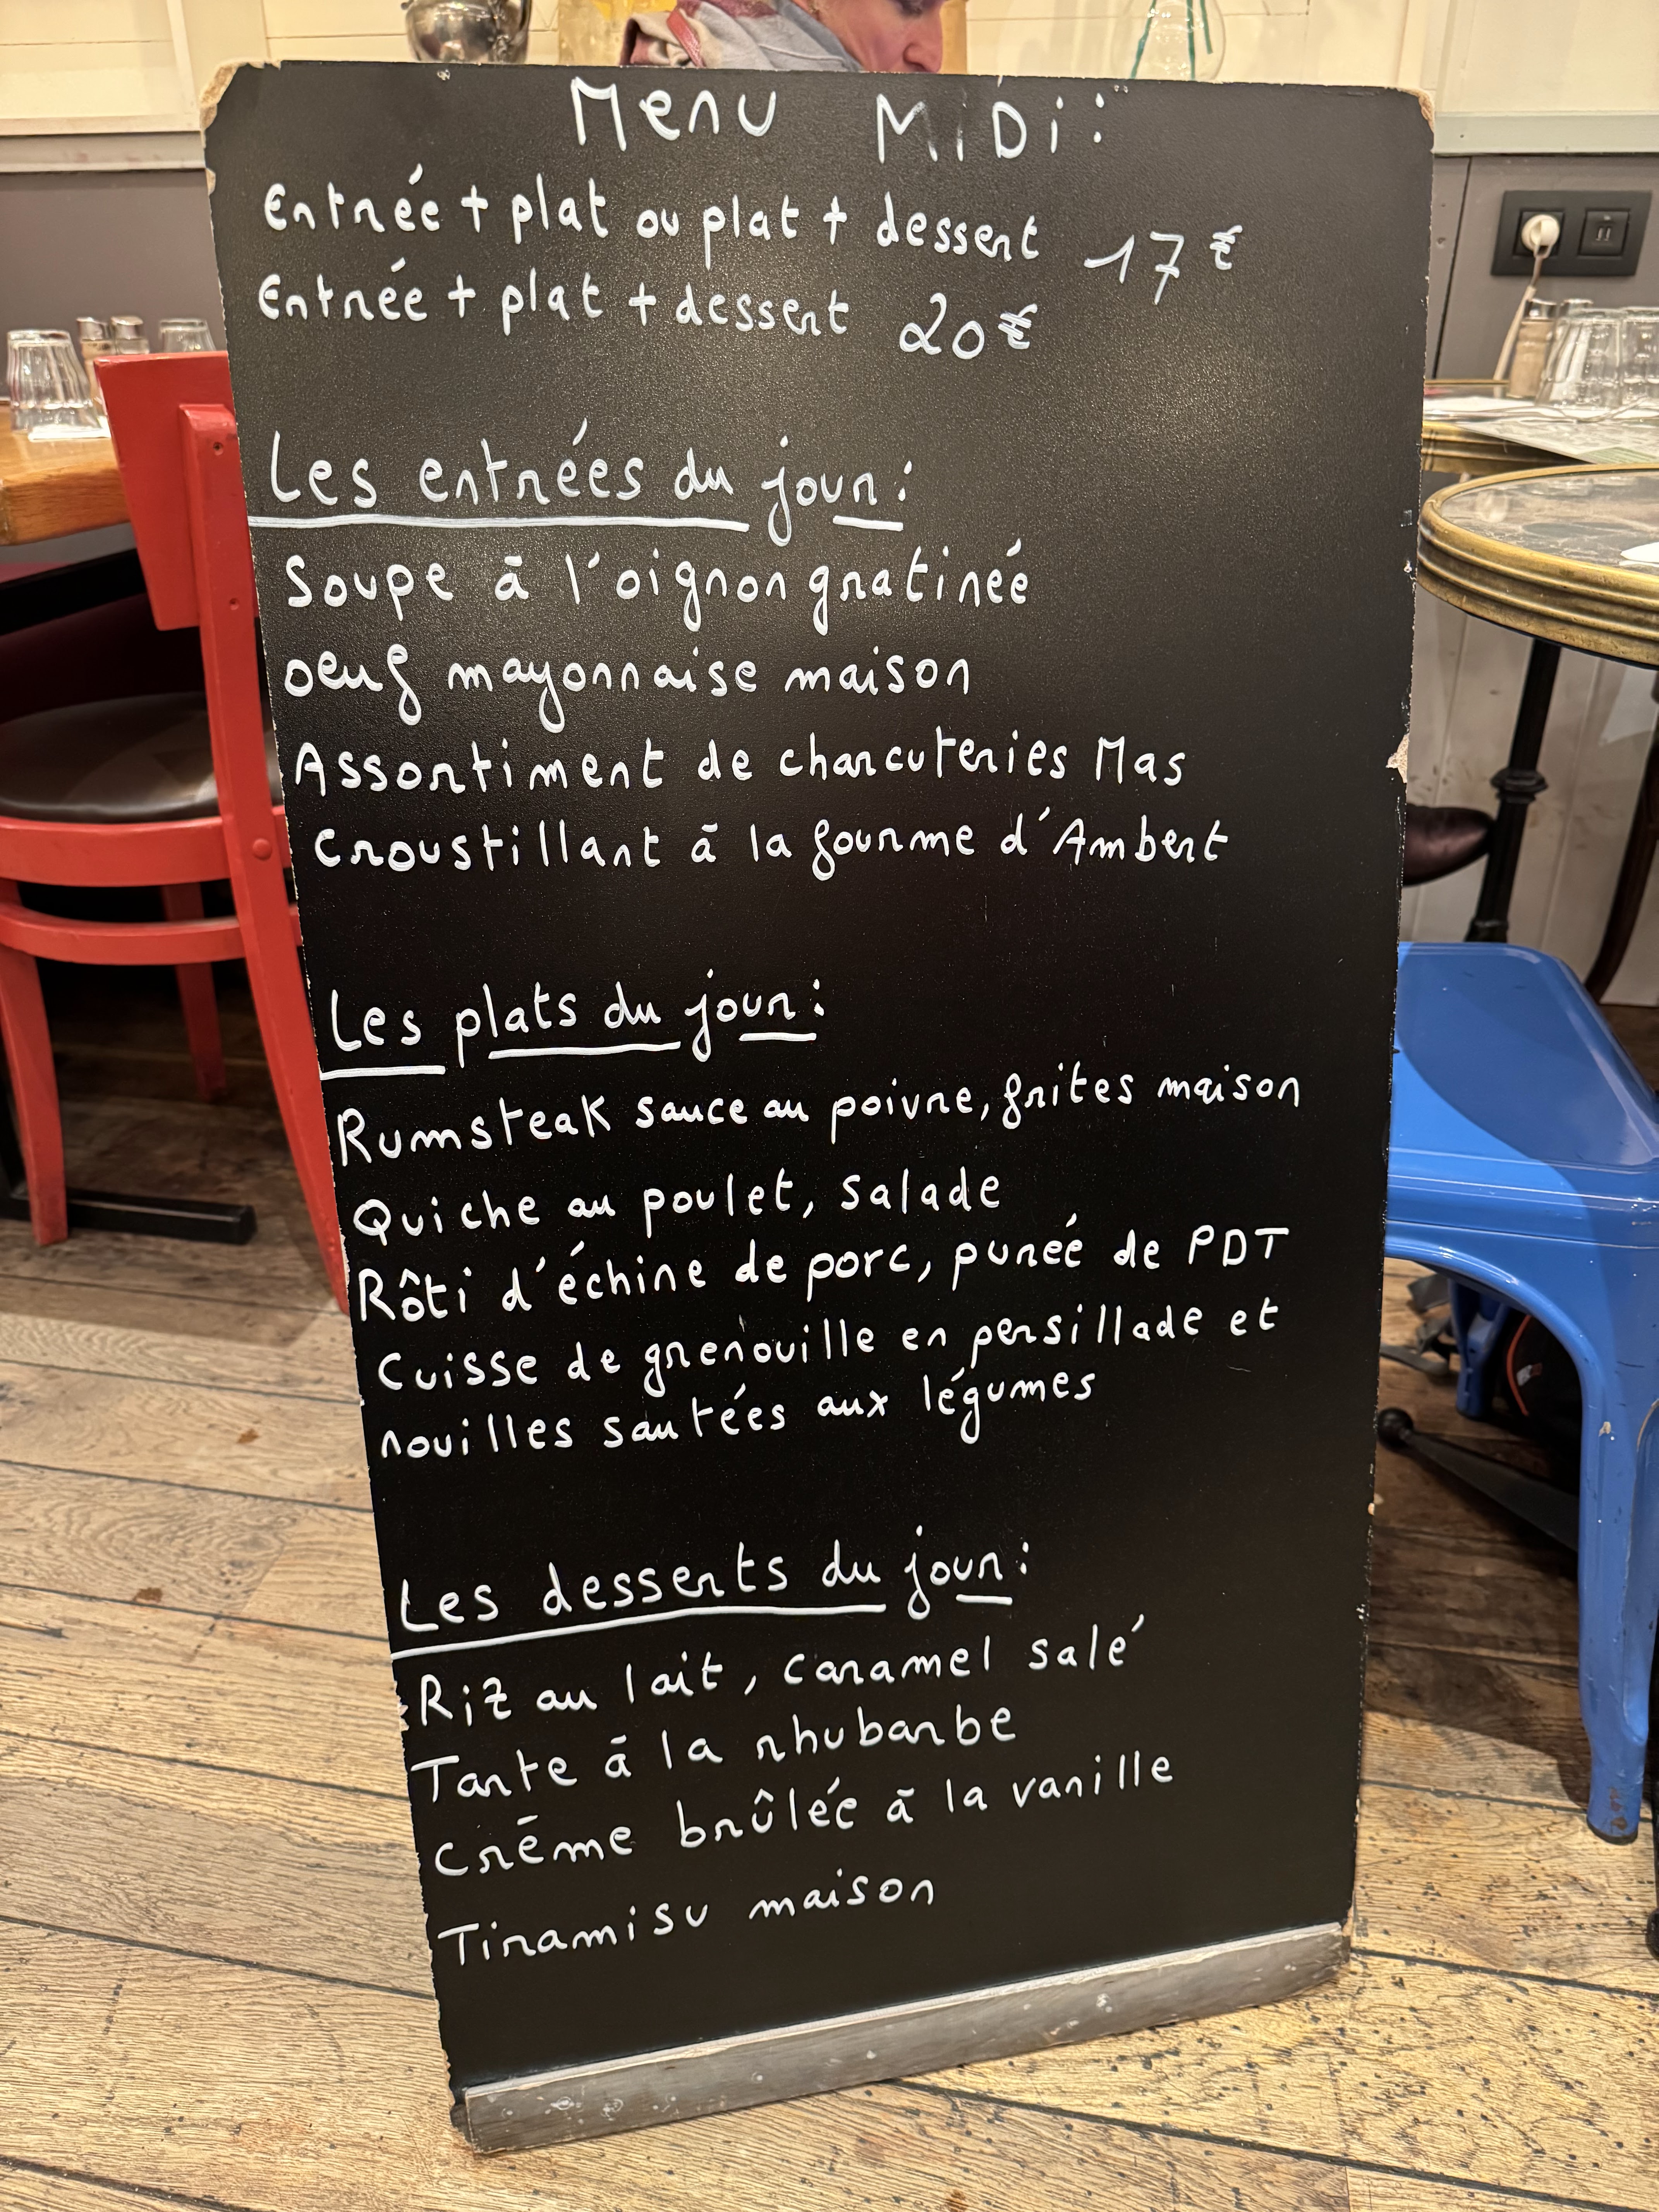 Menu MiDi:
Entrée + plat ou plat + dessert 17€
Entrée + plat + dessert 20€
Les entrées du jour:
Soupe à l'oignon gratinée
oeuf mayonnaise maison
Assortiment de charcuteries Mas
Croustillant à la fourme d'Ambert
Les plats du jour:
Rumsteak sauce au poivre, frites maison
Quiche au poulet, salade
Rôti d'échine de porc, purée de PDT
Cuisse de grenouille en persillade et
nouilles sautées aux légumes
Les desserts du jour:
Riz au lait, caramel salé
Tarte à la rhubarbe
Crème brûlée à la vanille
Tiramisu maison